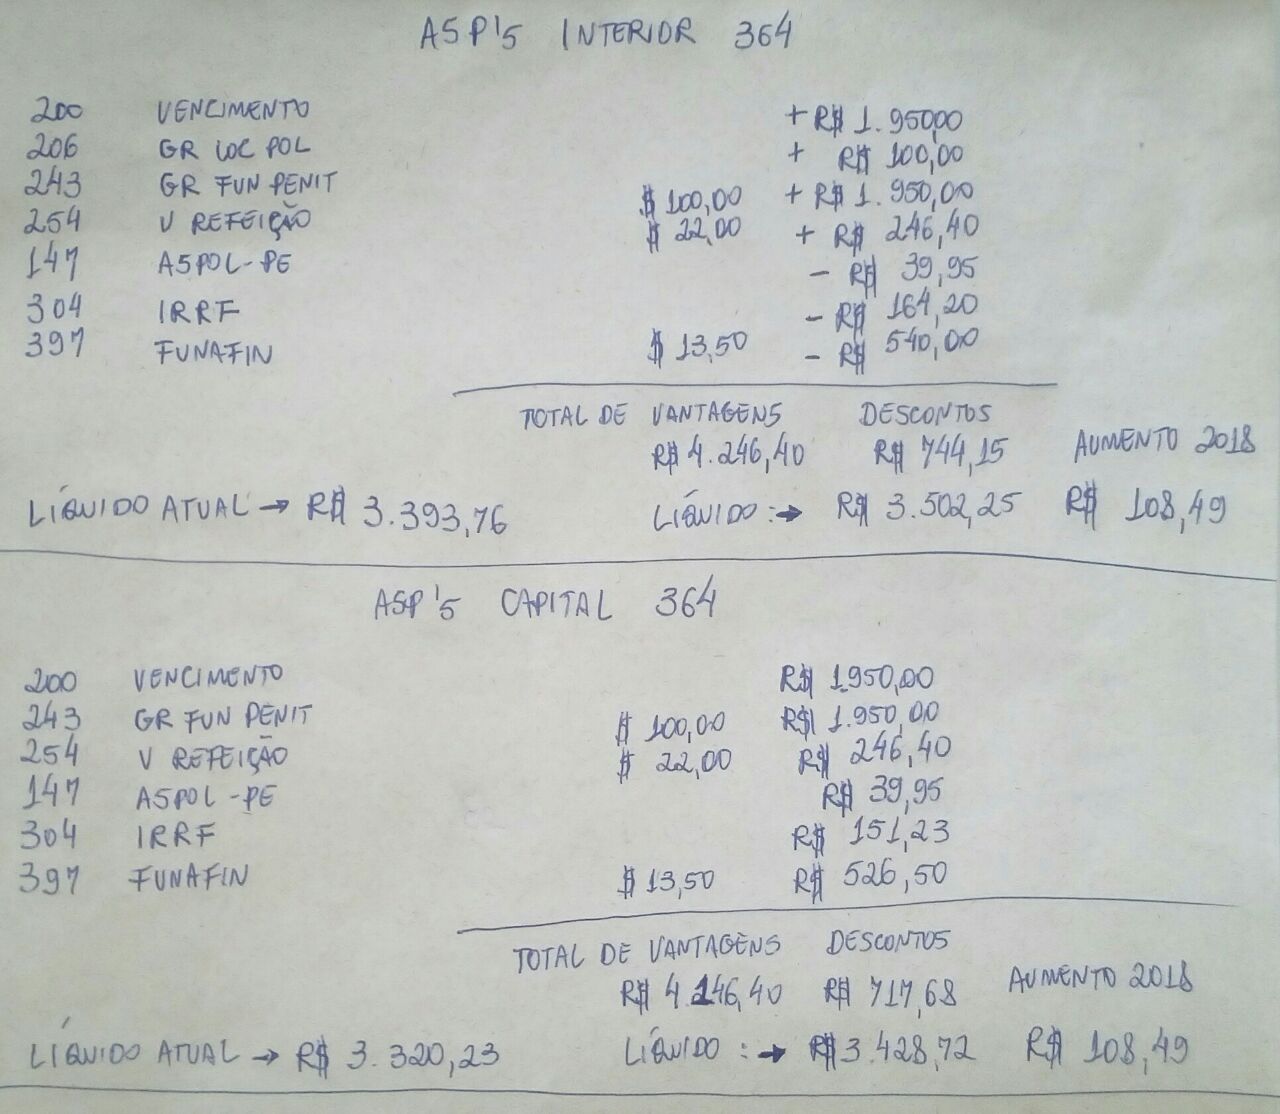 ASP'S INTERIOR 364
200 VENCIMENTO + R$ 1.950,00
206 GR LOC POL + R$ 100,00
243 GR FUN PENIT $ 100,00 + R$ 1.950,00
254 V REFEIÇÃO $ 22,00 + R$ 246,40
147 ASPOL-PE - R$ 39,95
304 IRRF - R$ 164,20
397 FUNAFIN $ 13,50 - R$ 540,00
TOTAL DE VANTAGENS DESCONTOS
R$ 4.246,40 R$ 744,15 AUMENTO 2018
LÍQUIDO ATUAL → R$ 3.393,76 LÍQUIDO :→ R$ 3.502,25 R$ 108,49
ASP'S CAPITAL 364
200 VENCIMENTO R$ 1.950,00
243 GR FUN PENIT $ 100,00 R$ 1.950,00
254 V REFEIÇÃO $ 22,00 R$ 246,40
147 ASPOL-PE R$ 39,95
304 IRRF R$ 151,23
397 FUNAFIN $ 13,50 R$ 526,50
TOTAL DE VANTAGENS DESCONTOS
R$ 4.146,40 R$ 717,68 AUMENTO 2018
LÍQUIDO ATUAL → R$ 3.320,23 LÍQUIDO :→ R$ 3.428,72 R$ 108,49